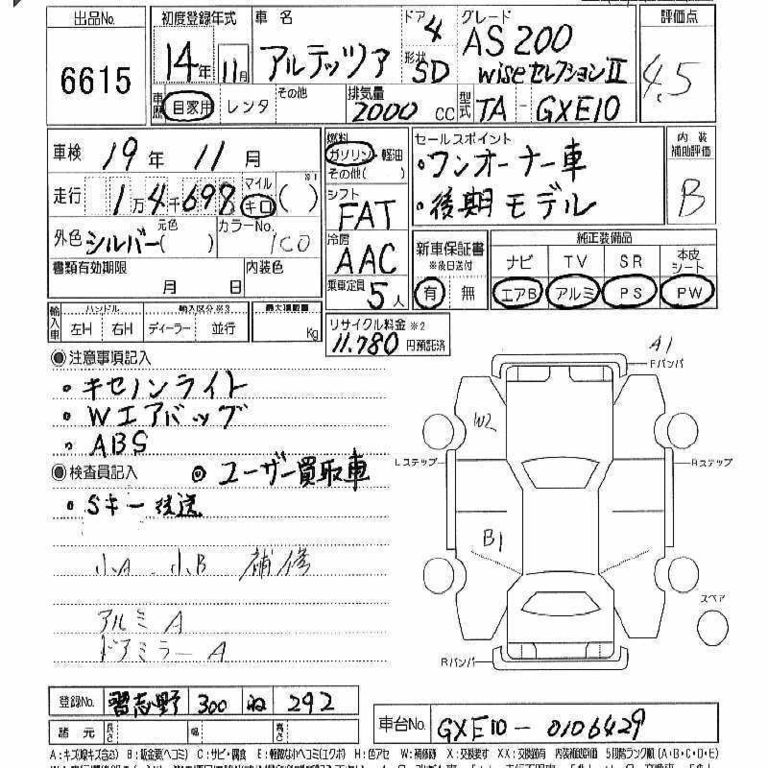 出品No. 初度登録年式 車名 ドア 4 グレード 評価点
6615 14年 11月 アルテッツァ 形状 SD AS200 4.5
wiseセレクションⅡ
車歴 自家用 レンタ その他 排気量 2000 CC 型式 TA - GXE10
車検 19年 11月 燃料 ガソリン・軽油 その他( ) セールスポイント 内装補助評価
・ワンオーナー車 B
走行 1万4千698 マイル キロ ( ) ※1 シフト FAT ・後期モデル
外色 シルバー 元色( ) カラーNo. 1C0 冷房 AAC 新車保証書 ※後日送付 純正装備品
ナビ TV SR 本皮シート
書類有効期限 月 日 内装色 乗車定員 5人 有 無 エアB アルミ PS PW
輸入車 ハンドル 輸入区分※3 最大積載量
左H 右H ディーラー 並行 Kg リサイクル料金 ※2
11.780 円預託済
◉注意事項記入 A1
Fバンパ
・キセノンライト
・Wエアバッグ W2
・ABS
Lステップ Rステップ
◉検査員記入 ◎ユーザー買取車
・Sキー後送
B1
小A 小B 補修
スペア
アルミA
ドアミラーA
Rバンパ
登録No. 習志野 300 ね 292
諸元 長さ 幅 高さ 車台No. GXE10-0106429
A:キズ(線キズ含む) B:鈑金要(ヘコミ) C:サビ・腐食 E:軽微なヘコミ(エクボ) H:色アセ W:補修跡 X:交換要す XX:交換跡有 内装補助評価 5段階ランク順(A・B・C・D・E)